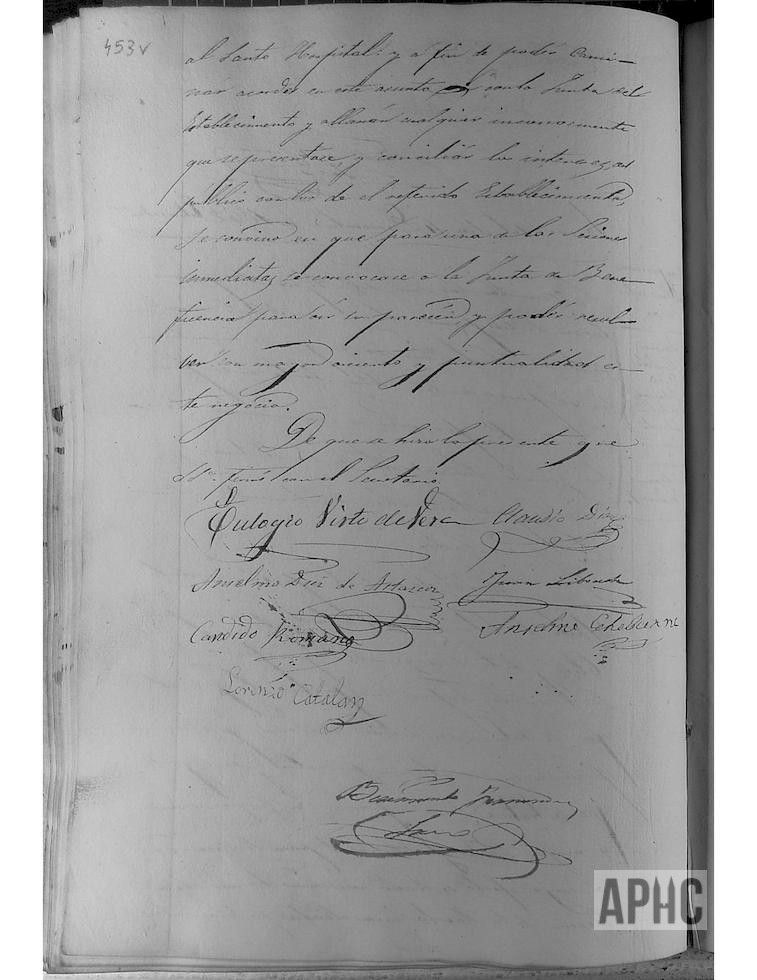 453v
al Santo Hospital: y a fin de poder Cami-
nar acordes en este asunto con la Junta del
Establecimiento y allanar cualquier inconveniente
que se presentase, y conciliar los intereses del
publico con los de el referido Establecimiento,
se convino en que para una de las Sesiones
inmediatas se convocase a la Junta de Bene-
ficencia para oir su parecer, y poder resol-
ver con mayor acierto y puntualidad es-
te negocio.
De que se hizo la presente que
firmó con el Secretario.
Eulogio Visto de Vera Claudio Diaz
Anselmo Diez de Juan
Candido Romano Anselmo
Lorenzo Catalan
APHC